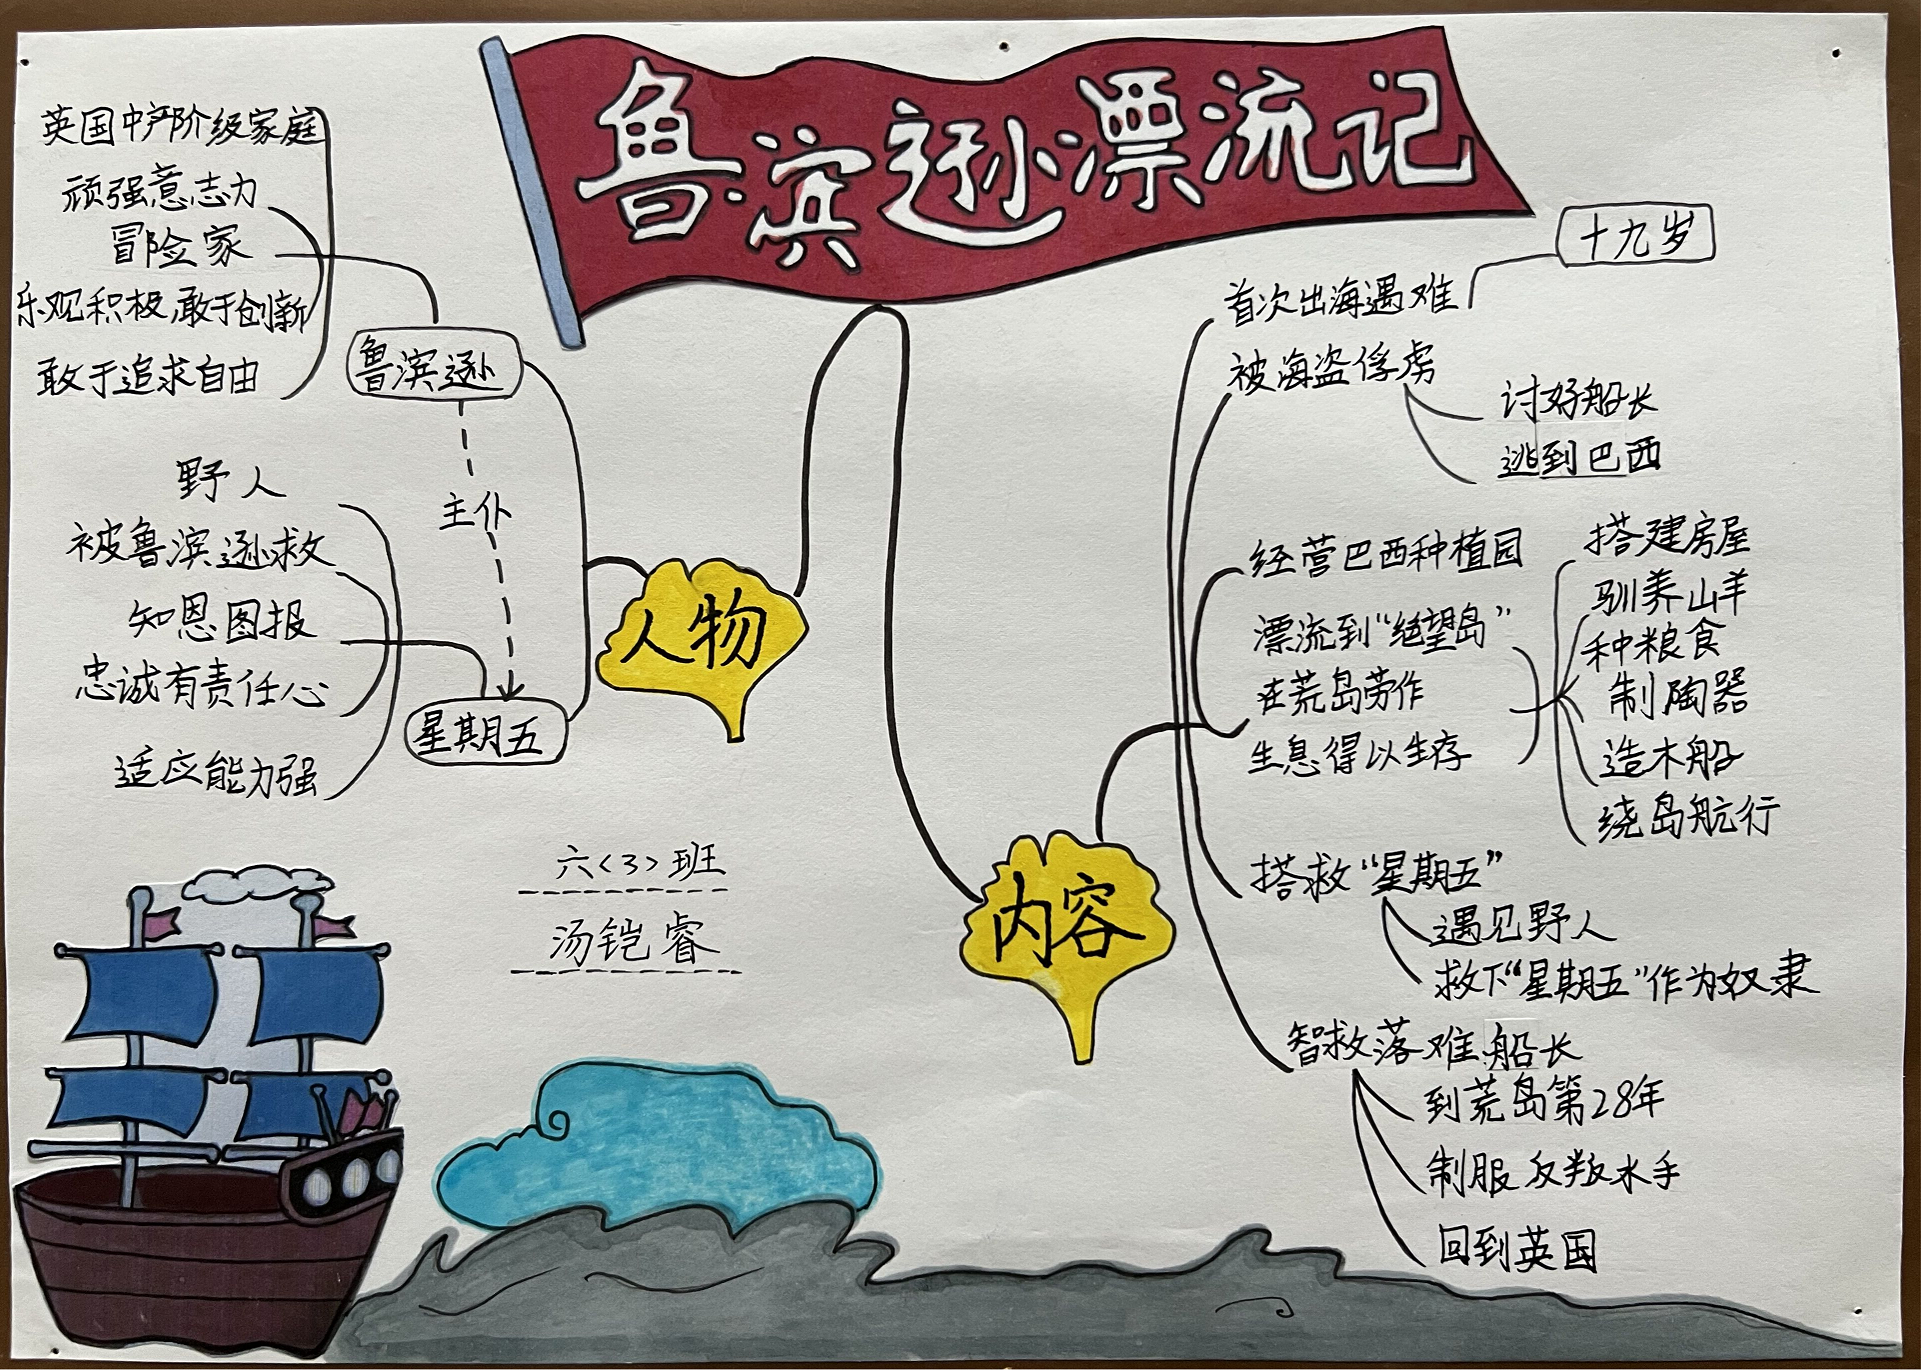 鲁滨逊漂流记
英国中产阶级家庭
顽强意志力
冒险家
乐观积极,敢于创新
敢于追求自由
鲁滨逊
主仆
野人
被鲁滨逊救
知恩图报
忠诚有责任心
适应能力强
星期五
人物
六<3>班
汤铠睿
内容
十九岁
首次出海遇难
被海盗俘虏
讨好船长
逃到巴西
经营巴西种植园
漂流到“绝望岛”
在荒岛劳作
生息得以生存
搭建房屋
驯养山羊
种粮食
制陶器
造木船
绕岛航行
搭救“星期五”
遇见野人
救下“星期五”作为奴隶
智救落难船长
到荒岛第28年
制服反叛水手
回到英国